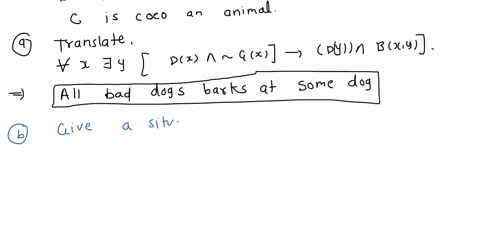 C is coco an animal.
(a) Translate.
∀ x ∃ y [ D(x) ∧ ~ G(x)] → (D(y)) ∩ B(x,y)].
=) All bad dogs barks at some dog
(b) Give a situ.